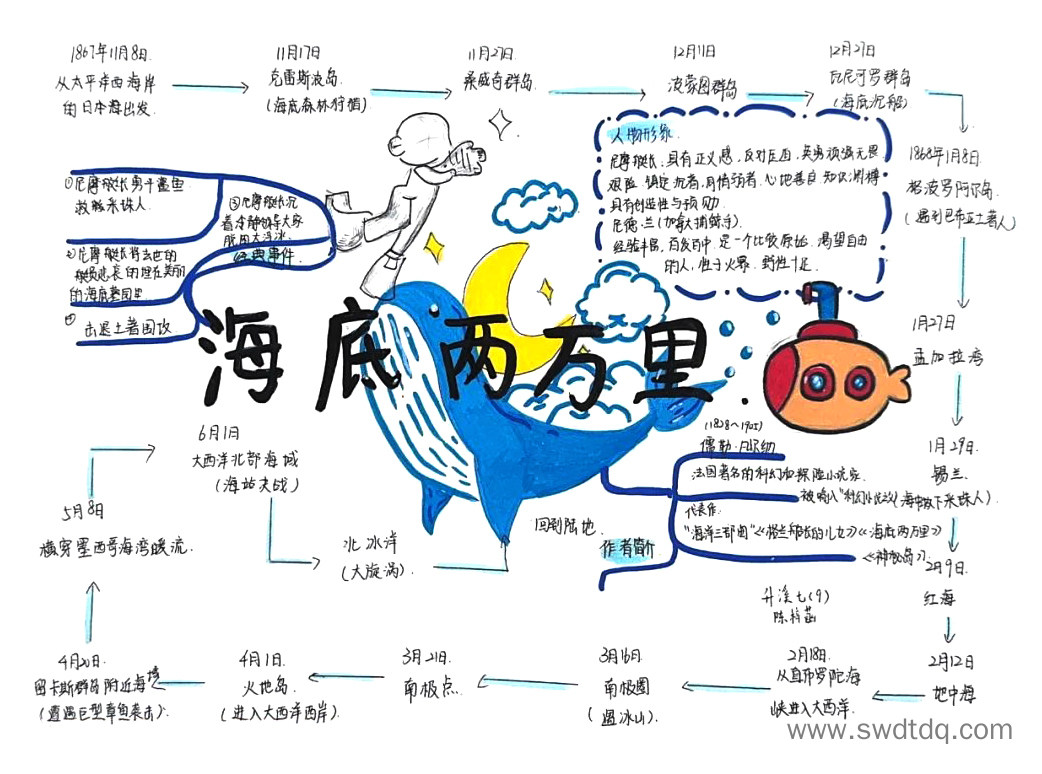 1867年11月8日.
从太平洋西海岸
的日本海出发.
11月17日
克雷斯波岛.
(海底森林狩猎)
11月27日
桑威奇群岛.
12月11日
波蒙图群岛
12月27日
瓦尼可罗群岛
(海底沉船)
1868年1月8日.
格波罗阿尔岛.
(遇到巴布亚土著人)
1月27日
孟加拉湾
1月29日.
锡兰.
(海中救下采珠人)
2月9日.
红海
2月12日
地中海
2月18日.
从直布罗陀海
峡进入大西洋.
3月16日.
南极圈
(遇冰山)
3月21日.
南极点.
4月1日.
火地岛.
(进入大西洋西岸)
4月20日.
留卡斯群岛附近海域
(遭遇巨型章鱼袭击).
5月8日
横穿墨西哥海湾暖流.
6月1日
大西洋北部海域
(海站决战)
北冰洋
(大旋涡).
回到陆地.
海底两万里
①尼摩艇长勇斗鲨鱼
救贩采珠人.
②尼摩艇长将去世的
的海底墓园里
③尼摩艇长沉
着冷静领导大家
脱困大浮冰.
④ 击退土著围攻
经典事件
人物形象.
尼摩艇长:具有正义感,反对压迫,英勇顽强无畏
艰险.镇定沉着,同情弱者.心地善良.知识渊博
具有创造性与预见力.
尼德·兰(加拿大捕鲸手).
经验丰富,百发百中.是一个比较原始.渴望自由
的人,性子火暴.野性十足.
(1828~1905)
儒勒·凡尔纳
法国著名的科幻和探险小说家.
代表作:
"海洋三部曲"《格兰特船长的儿女》《海底两万里》
《神秘岛》.
作者简介
陈
www.swdtdq.com